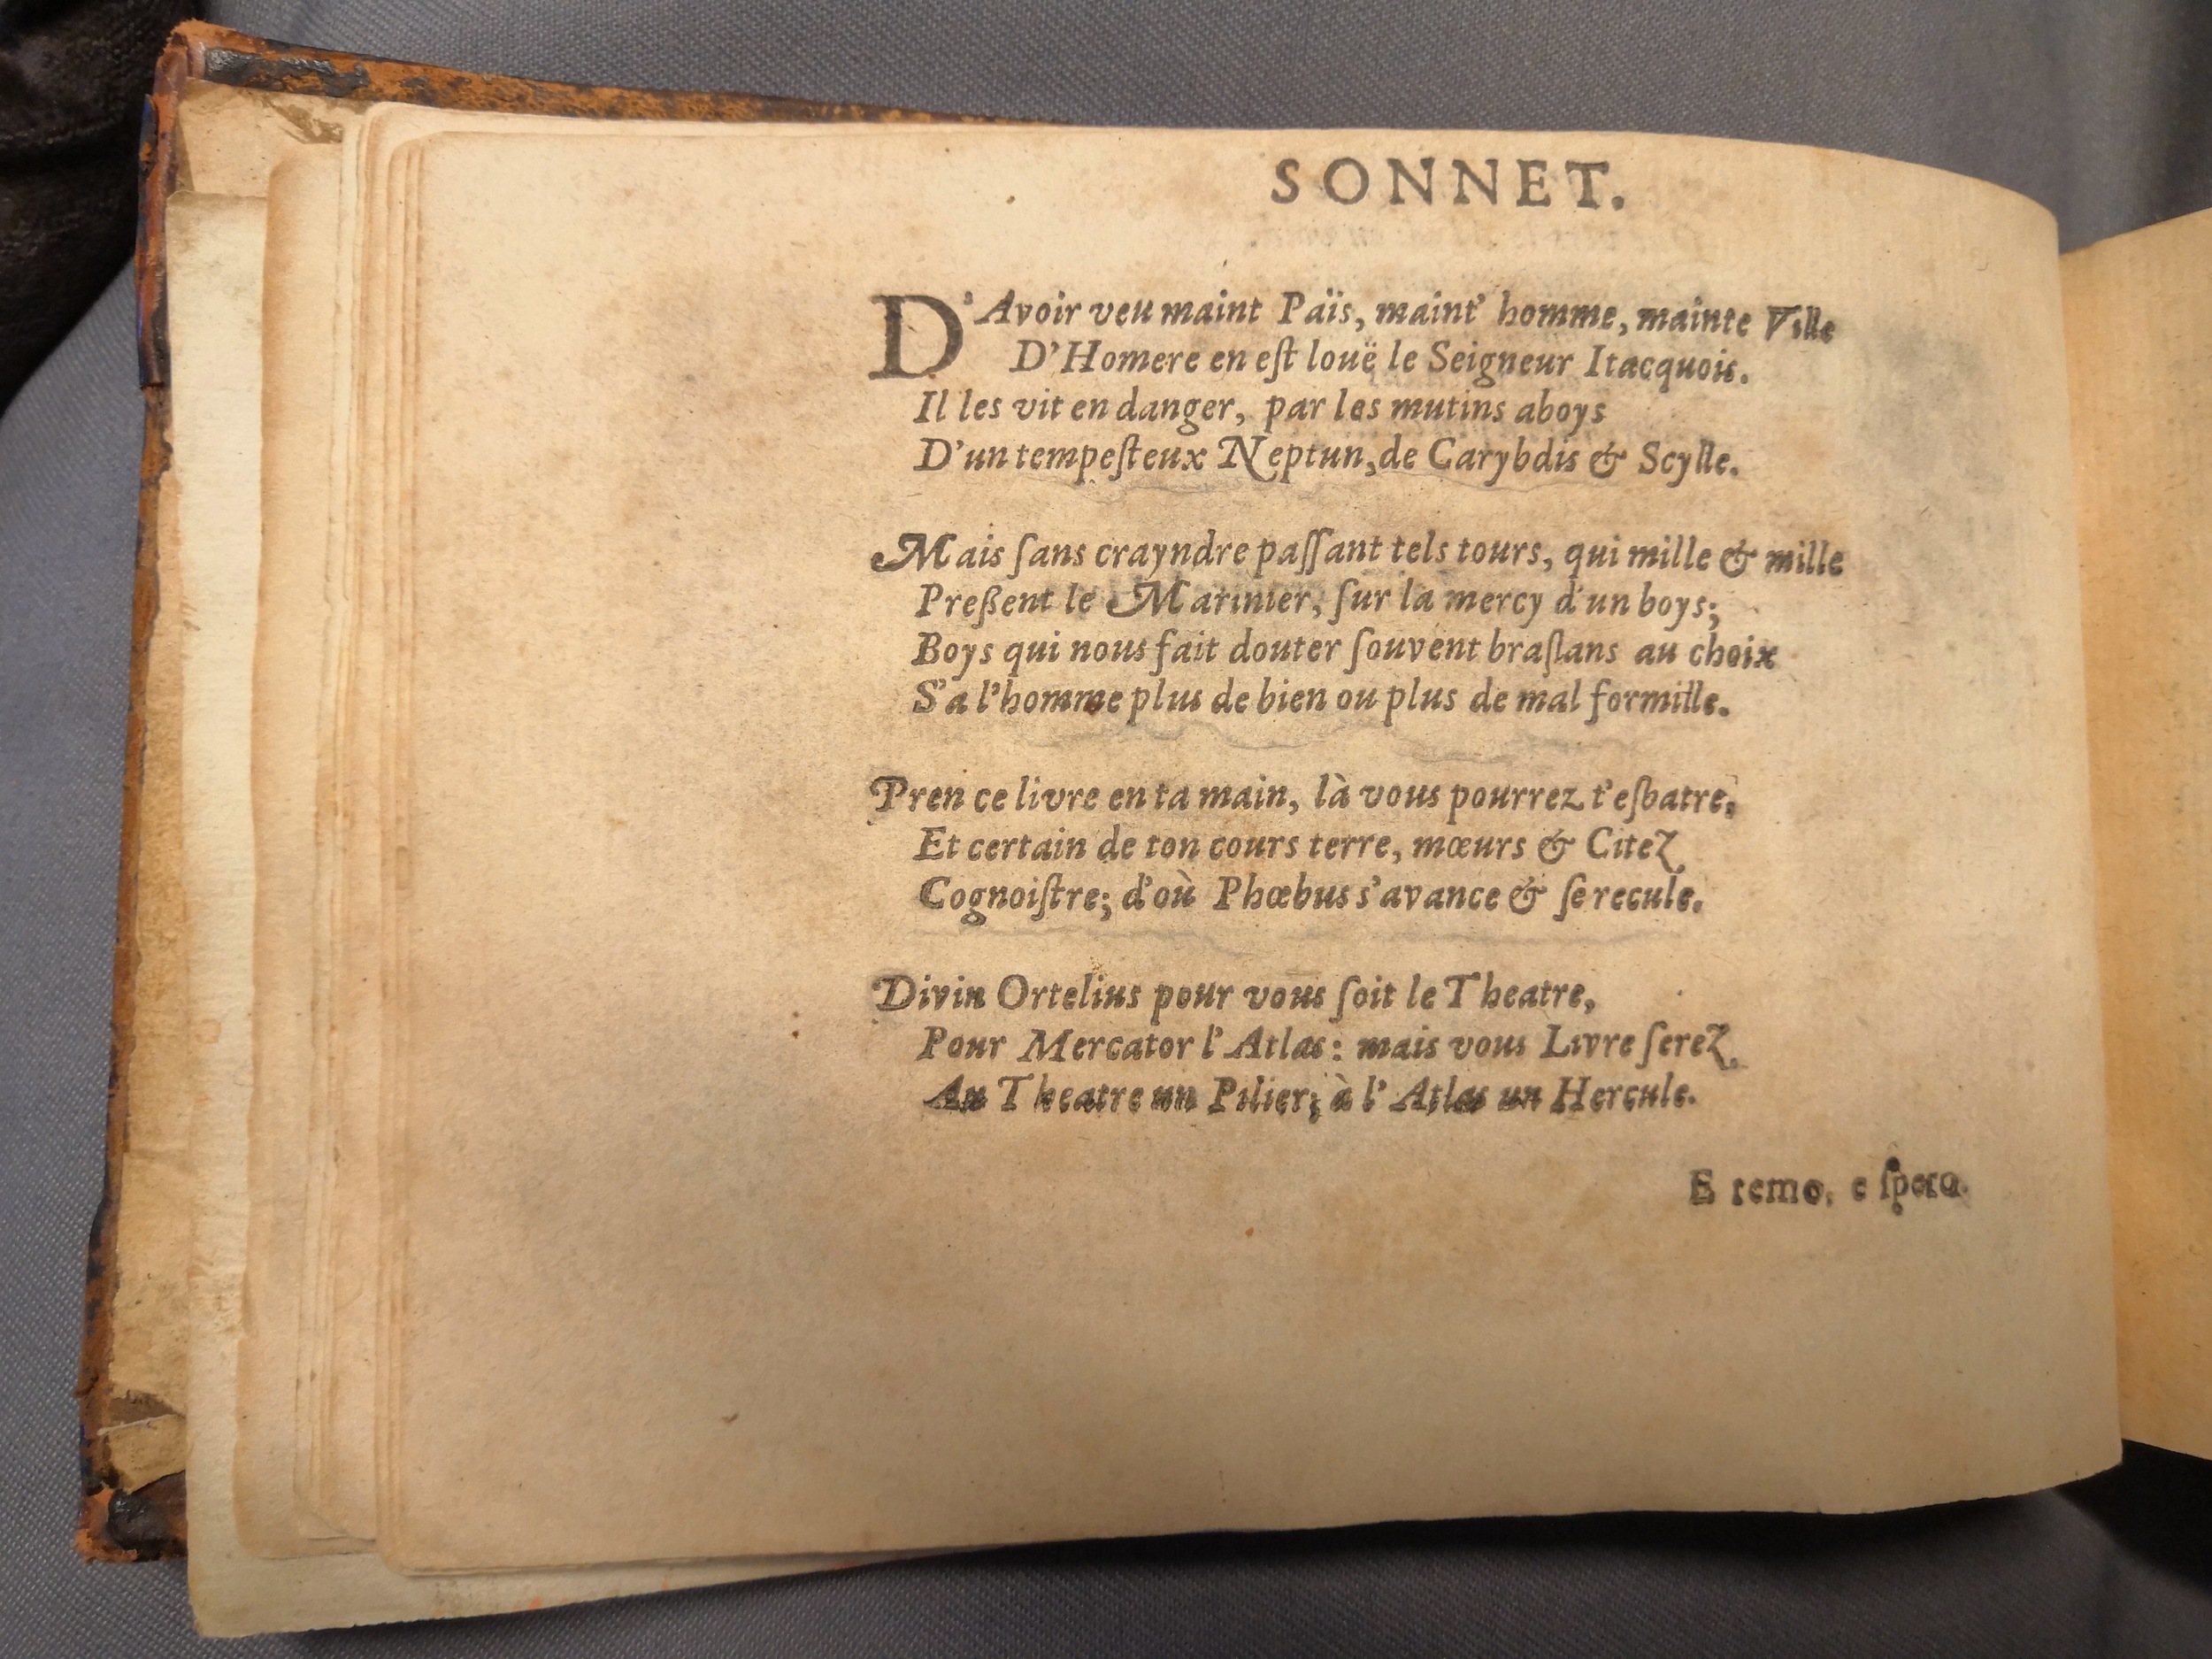 SONNET.
D'Avoir veu maint Païs, maint' homme, mainte Ville
D'Homere en eſt louë le Seigneur Itacquois.
Il les vit en danger, par les mutins aboys
D'un tempeſteux Neptun, de Carybdis & Scylle.
Mais ſans crayndre paſſant tels tours, qui mille & mille
Preßent le Marinier, ſur la mercy d'un boys;
Boys qui nous fait douter ſouvent braſlans au choix
S'a l'homme plus de bien ou plus de mal formille.
Pren ce livre en ta main, là vous pourrez t'eſbatre,
Et certain de ton cours terre, mœurs & Citez
Cognoiſtre; d'où Phœbus s'avance & ſe recule.
Divin Ortelius pour vous ſoit le Theatre,
Pour Mercator l'Atlas: mais vous Livre ſerez
Au Theatre un Pilier; à l'Atlas un Hercule.
E temo, e ſpero.